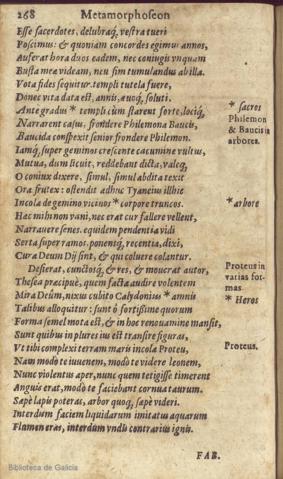 268 Metamorphoseon
Esse sacerdotes, delubraq́, vestra tueri
Poscimus: & quoniam concordes egimus annos,
Auferat hora duos eadem, nec coniugis vnquam
Busta meæ videam, neu sim tumulandus ab illa.
Vota fides sequitur. templi tutela fuere,
Donec vita data est, annis, æuoq́, soluti.
Ante gradus * templi cùm starent forte, lociq́,
* sacros
Narrarent casus, frondere Philemona Baucis,
Philemon
Baucida conspexit senior frondere Philemon.
& Baucis in
Iamq́, super geminos crescente cacumine vultus,
arbores.
Mutua, dum licuit, reddebant dicta, valeq́,
O coniux dixere, simul, simul abdita texit
Ora frutex: ostendit adhuc Tyaneius illhic
Incola de gemino vicinos * corpore truncos.
* arbore
Hæc mihi non vani, nec erat cur fallere vellent,
Narrauere senes. equidem pendentia vidi
Serta super ramos. ponensq́, recentia, dixi,
Cura Deûm Dij sint, & qui coluere colantur.
Desierat, cunctosq́, & res, & mouerat autor,
Proteus in
Thesea præcipuè, quem facta audire volentem
varias for-
mas
Mira Deûm, nixus cubito Calydonius * amnis
* Heros
Talibus alloquitur: sunt ô fortissime quorum
Forma semel mota est, & in hoc renouamine mansit,
Sunt quibus in plures ius est transire figuras,
Vt tibi complexi terram maris incola Proteu,
Proteus.
Nam modò te iuuenem, modò te videre leonem,
Nunc violentus aper, nunc quem tetigisse timerent
Anguis erat, modò te faciebant cornua taurum.
Sæpè lapis poteras, arbor quoq́, sæpè videri.
Interdum faciem liquidarum imitatus aquarum
Flumen eras, interdum vndis contrarius ignis.
FAB.
Biblioteca de Galicia